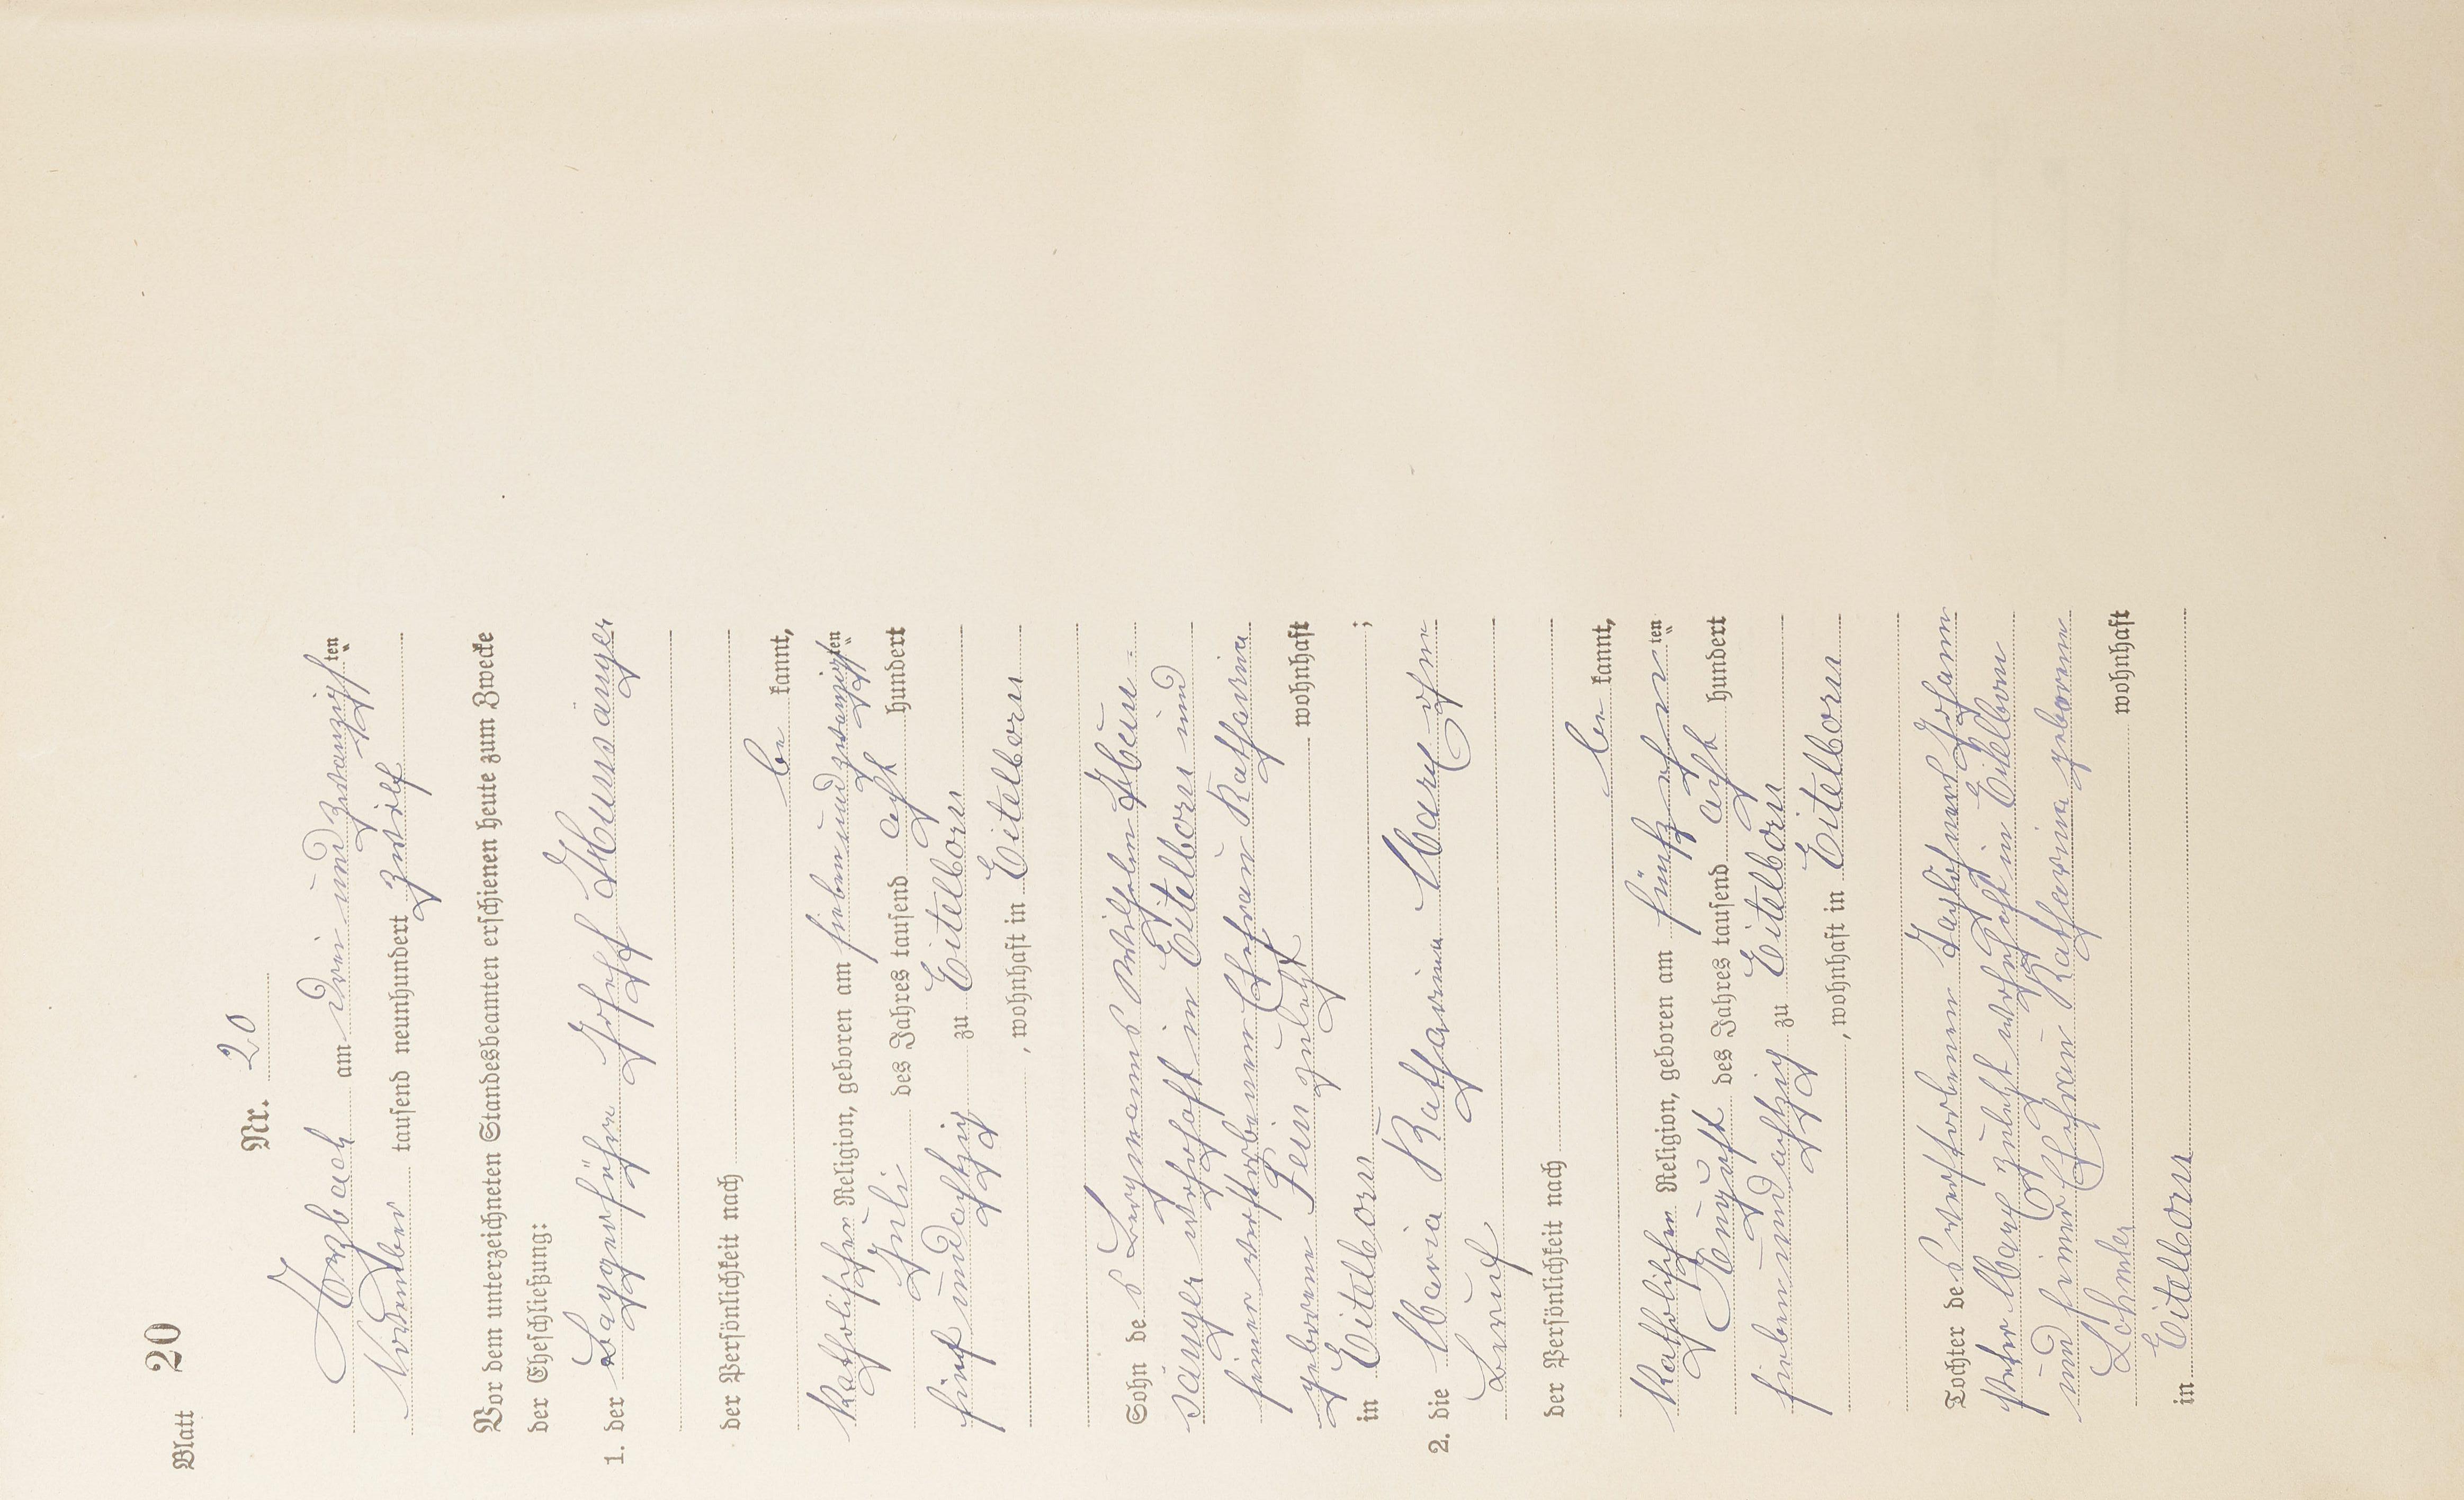 Blatt 20
Nr. 20
Arzbach am drei und zwanzigsten
November tausend neunhundert zwölf
Vor dem unterzeichneten Standesbeamten erschienen heute zum Zwecke
der Eheschließung:
1. der Baggerführer Josef Neusänger
der Persönlichkeit nach
be kannt,
katholischen Religion, geboren am sieben und zwanzigsten
Juli des Jahres tausend acht hundert
fünf und achtzig zu Eitelborn
, wohnhaft in Eitelborn
Sohn de s Bergmanns Wilhelm Neu-
sänger wohnhaft in Eitelborn und
seiner verstorbenen Ehefrau Katharina
geborene zuletzt wohnhaft
in Eitelborn ;
2. die Maria Katharina Marx ohne
Beruf
der Persönlichkeit nach
be kannt,
katholischen Religion, geboren am fünfzehnten
August des Jahres tausend acht hundert
sieben und achtzig zu Eitelborn
, wohnhaft in Eitelborn
Tochter de s verstorbenen Johann
Peter Marx zuletzt wohnhaft in Eitelborn
und seiner Ehefrau Katharina geborene
wohnhaft
in Eitelborn